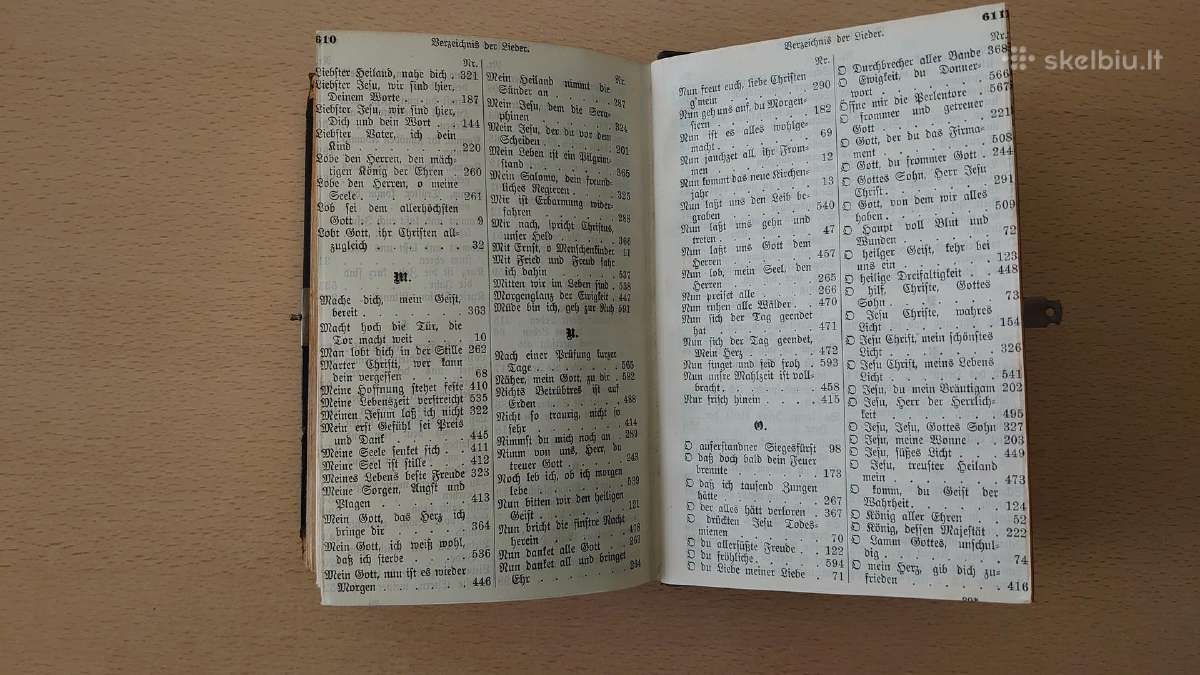 610
Verzeichnis der Lieder.
Nr.
Liebster Heiland, nahe dich . 321
Liebster Jesu, wir sind hier,
Deinem Worte . . 187
Liebster Jesu, wir sind hier,
Dich und dein Wort . 144
Liebster Vater, ich dein
Kind . . . . 220
Lobe den Herren, den mäch-
tigen König der Ehren . 260
Lobe den Herren, o meine
Seele . . . . 261
Lob sei dem allerhöchsten
Gott . . . . 9
Lobt Gott, ihr Christen all-
zugleich . . . . 32
M.
Mache dich, mein Geist,
bereit . . . . 363
Macht hoch die Tür, die
Tor macht weit . . 10
Man lobt dich in der Stille 262
Marter Christi, wer kann
dein vergessen . . 68
Meine Hoffnung stehet feste 410
Meine Lebenszeit verstreicht 535
Meinen Jesum laß ich nicht 322
Mein erst Gefühl sei Preis
und Dank . . . 445
Meine Seele senket sich . . 411
Meine Seel ist stille . . 412
Meines Lebens beste Freude 323
Meine Sorgen, Angst und
Plagen . . . . 413
Mein Gott, das Herz ich
bringe dir . . . 364
Mein Gott, ich weiß wohl,
daß ich sterbe . . . 536
Mein Gott, nun ist es wieder
Morgen . . . . 446
Nr.
Mein Heiland nimmt die
Sünder an . . . 287
Mein Jesu, dem die Sera-
phinen . . . . 324
Mein Jesu, der du vor dem
Scheiden . . . . 201
Mein Leben ist ein Pilgrim-
stand . . . . 365
Mein Salomo, dein freund-
liches Regieren . . 325
Mir ist Erbarmung wider-
fahren . . . . 288
Mir nach, spricht Christus,
unser Held . . . 366
Mit Ernst, o Menschenkinder 11
Mit Fried und Freud fahr
ich dahin . . . 537
Mitten wir im Leben sind . 538
Morgenglanz der Ewigkeit . 447
Müde bin ich, geh zur Ruh 591
N.
Nach einer Prüfung kurzer
Tage . . . . 565
Näher, mein Gott, zu dir . 592
Nichts Betrübtres ist auf
Erden . . . . 488
Nicht so traurig, nicht so
sehr . . . . 414
Nimmst du mich noch an . 289
Nimm von uns, Herr, du
treuer Gott . . . 243
Noch leb ich, ob ich morgen
lebe . . . . 539
Nun bitten wir den heiligen
Geist . . . . 121
Nun bricht die finstre Nacht
herein . . . . 478
Nun danket alle Gott . . 263
Nun danket all und bringet
Ehr . . . . 264
611
Verzeichnis der Lieder.
Nr.
Nun freut euch, liebe Christen
g'mein . . . . 290
Nun geh uns auf, du Morgen-
stern . . . . 182
Nun ist es alles wohlge-
macht . . . . 69
Nun jauchzet all, ihr From-
men . . . . 12
Nun kommt das neue Kirchen-
jahr . . . . 13
Nun laßt uns den Leib be-
graben . . . . 540
Nun laßt uns gehn und
treten . . . . 47
Nun laßt uns Gott dem
Herren . . . . 457
Nun lob, mein Seel, den
Herren . . . . 265
Nun preiset alle . . . 266
Nun ruhen alle Wälder . . 470
Nun sich der Tag geendet
hat . . . . 471
Nun sich der Tag geendet,
Mein Herz . . . 472
Nun singet und seid froh . 593
Nun unsre Mahlzeit ist voll-
bracht . . . . 458
Nur frisch hinein . . . 415
O.
O auferstandner Siegesfürst 98
O daß doch bald dein Feuer
brennte . . . . 173
O daß ich tausend Zungen
hätte . . . . 267
O der alles hätt verloren . 367
O drückten Jesu Todes-
mienen . . . . 70
O du allersüßte Freude . . 122
O du fröhliche . . . 594
O du Liebe meiner Liebe . 71
Nr.
O Durchbrecher aller Bande 368
O Ewigkeit, du Donner-
wort . . . . 566
Öffne mir die Perlentore 567
O frommer und getreuer
Gott . . . . 221
O Gott, der du das Firma-
ment . . . . 508
O Gott, du frommer Gott . 244
O Gottes Sohn, Herr Jesu
Christ . . . . 291
O Gott, von dem wir alles
haben . . . . 509
O Haupt voll Blut und
Wunden . . . . 72
O heilger Geist, kehr bei
uns ein . . . . 123
O heilige Dreifaltigkeit . . 448
O hilf, Christe, Gottes
Sohn . . . . 73
O Jesu Christe, wahres
Licht . . . . 154
O Jesu Christ, mein schönstes
Licht . . . . 326
O Jesu Christ, meins Lebens
Licht . . . . 541
O Jesu, du mein Bräutigam 202
O Jesu, Herr der Herrlich-
keit . . . . 495
O Jesu, Jesu, Gottes Sohn 327
O Jesu, meine Wonne . . 203
O Jesu, süßes Licht . . 449
O Jesu, treuster Heiland
mein . . . . 473
O komm, du Geist der
Wahrheit . . . . 124
O König aller Ehren . . 52
O König, dessen Majestät . 222
O Lamm Gottes, unschul-
dig . . . . 74
O mein Herz, gib dich zu-
frieden . . . . 416
skelbiu.lt